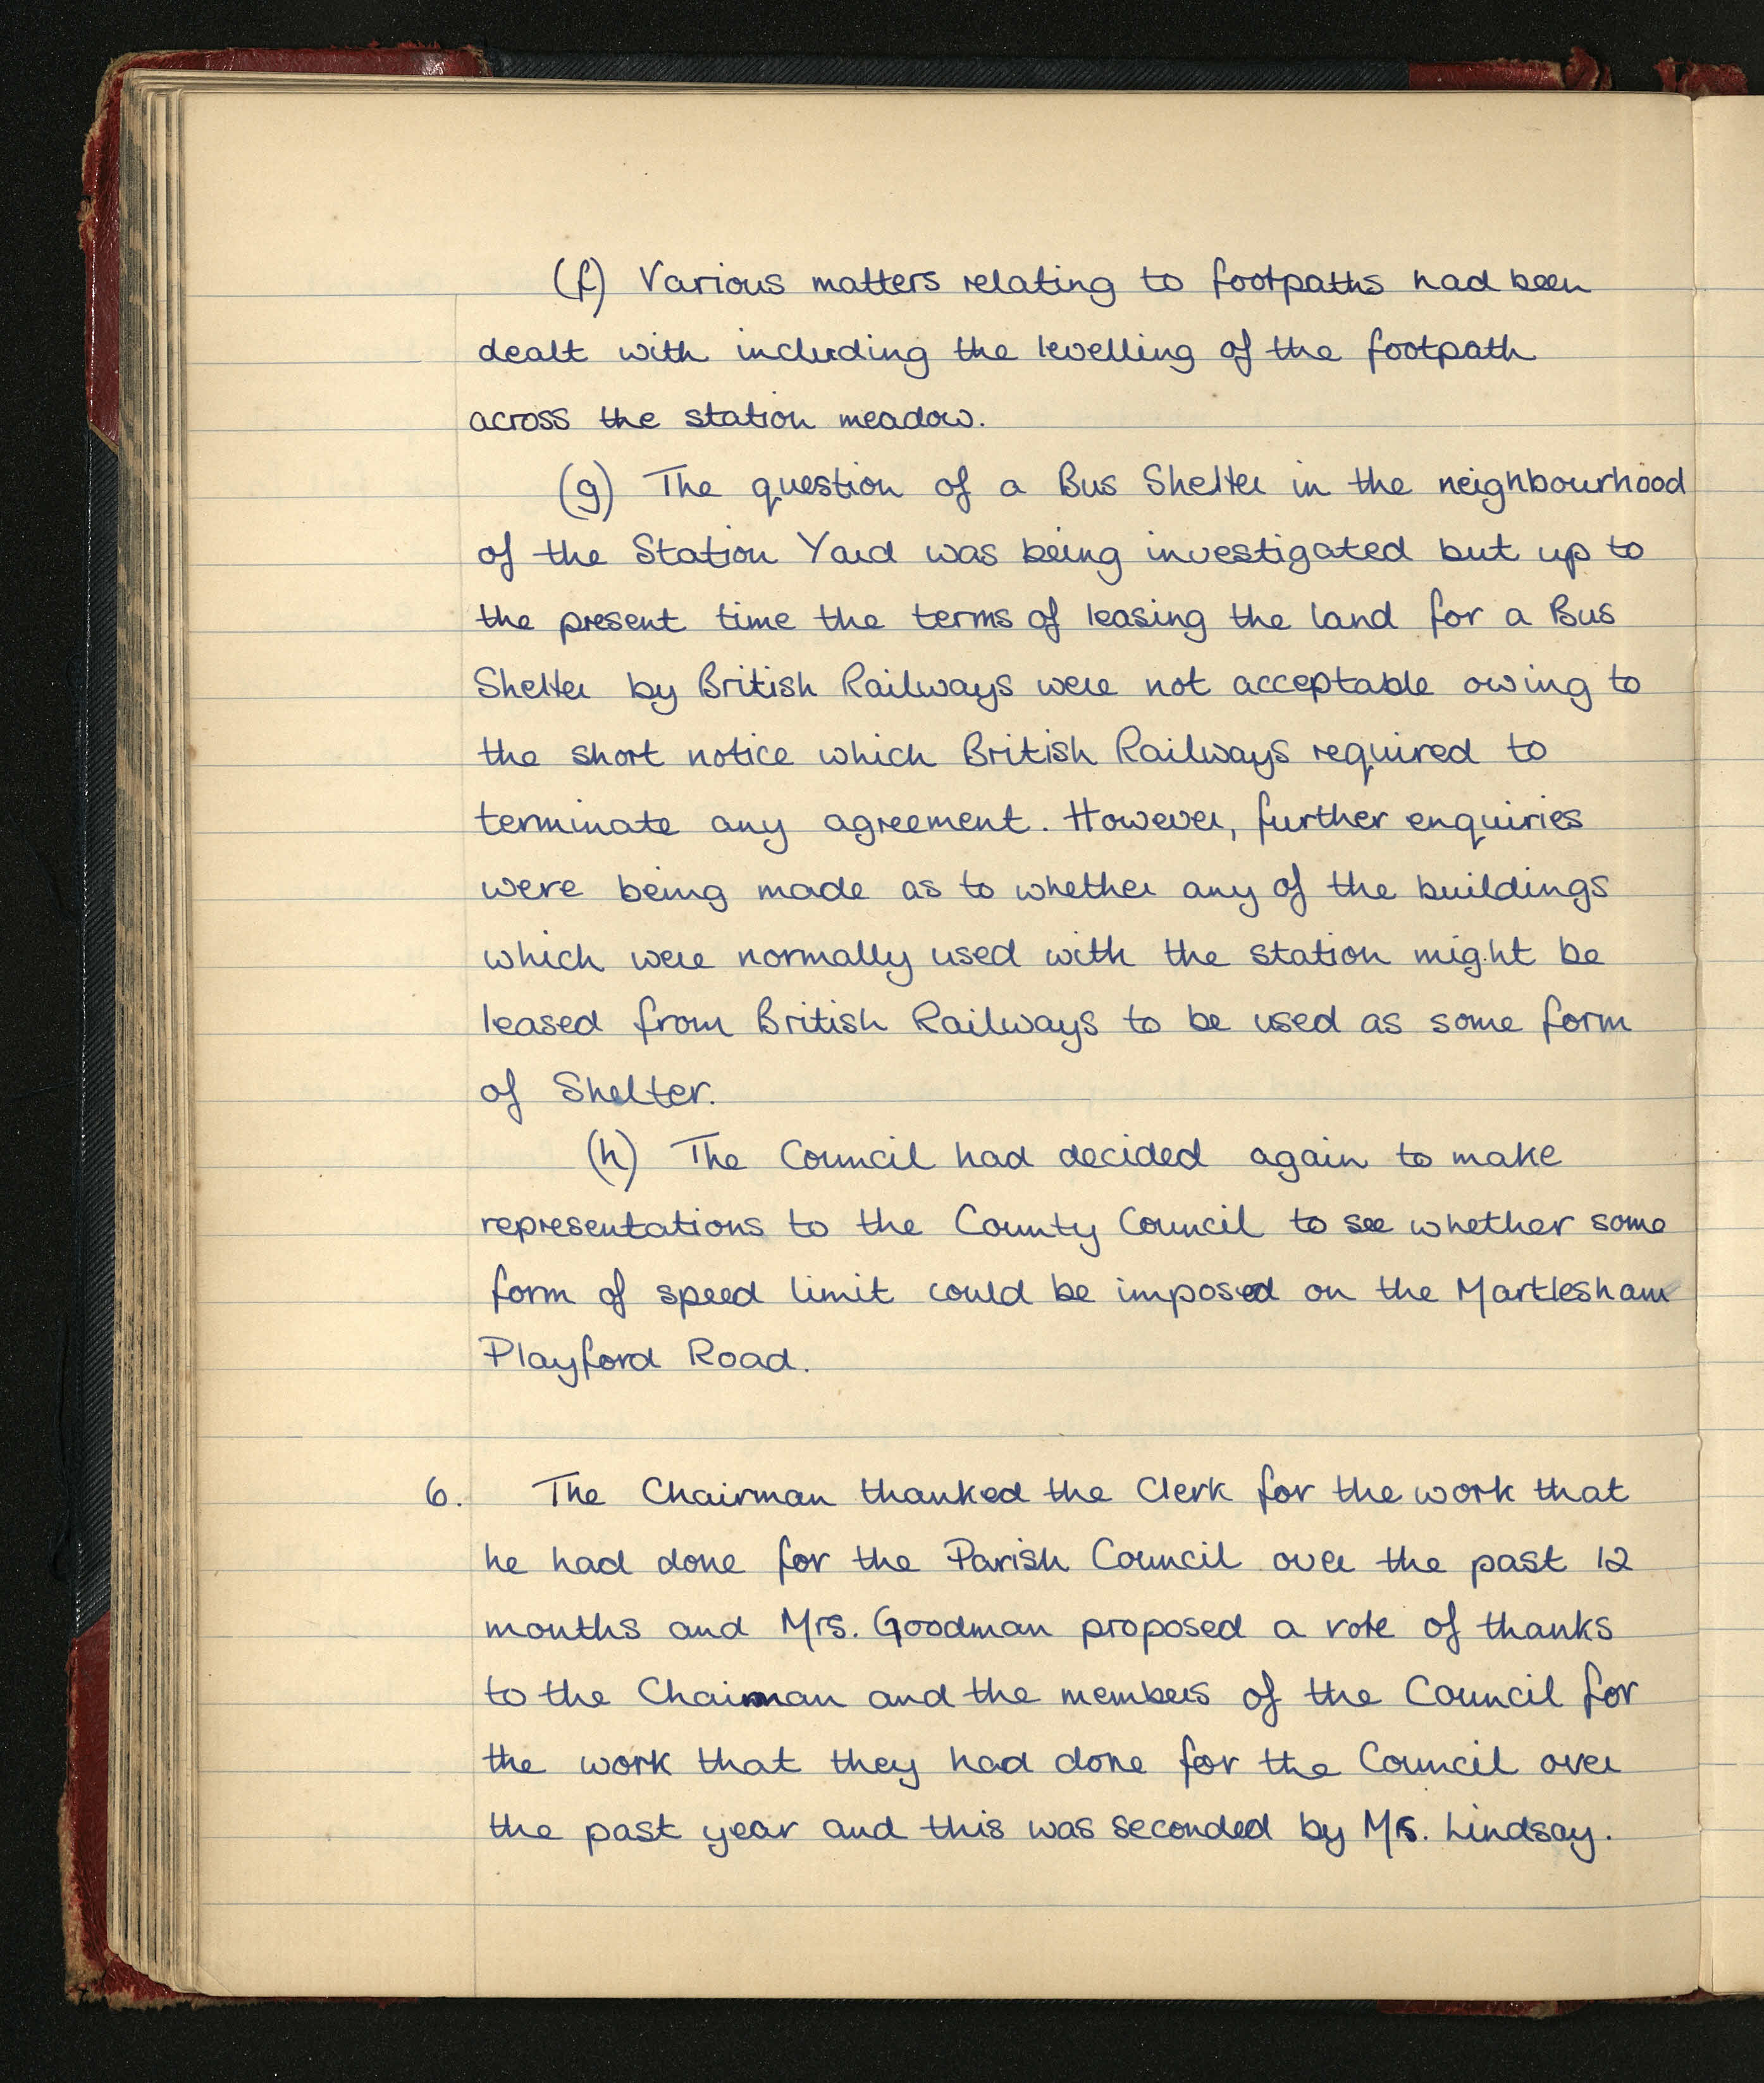 (f) Various matters relating to footpaths had been
dealt with including the levelling of the footpath
across the station meadow.
(g) The question of a Bus Shelter in the neighbourhood
of the Station Yard was being investigated but up to
the present time the terms of leasing the land for a Bus
Shelter by British Railways were not acceptable owing to
the short notice which British Railways required to
terminate any agreement. However, further enquiries
were being made as to whether any of the buildings
which were normally used with the station might be
leased from British Railways to be used as some form
of Shelter.
(h) The Council had decided again to make
representations to the County Council to see whether some
form of speed limit could be imposed on the Martlesham
Playford Road.
6. The Chairman thanked the Clerk for the work that
he had done for the Parish Council over the past 12
months and Mrs. Goodman proposed a vote of thanks
to the Chairman and the members of the Council for
the work that they had done for the Council over
the past year and this was seconded by Lindsay.